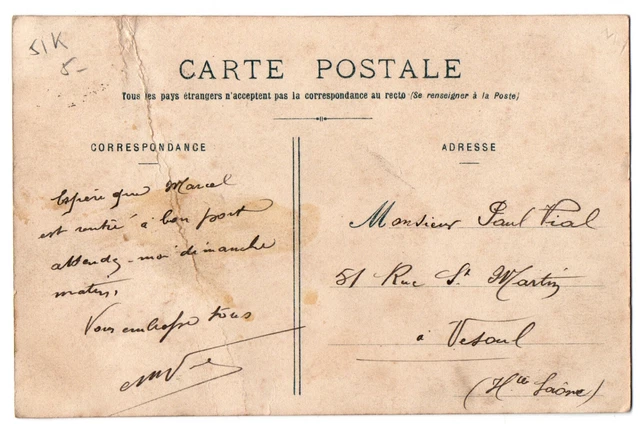 51K
5-
CARTE POSTALE
Tous les pays étrangers n'acceptent pas la correspondance au recto (Se renseigner à la Poste)
CORRESPONDANCE
Espère que Marcel
est rentré à bon port
attendez-moi dimanche
matin,
Vous embrasse tous
ADRESSE
Monsieur Paul Vial
51 Rue St Martin
à Vesoul
(Hte Saône)